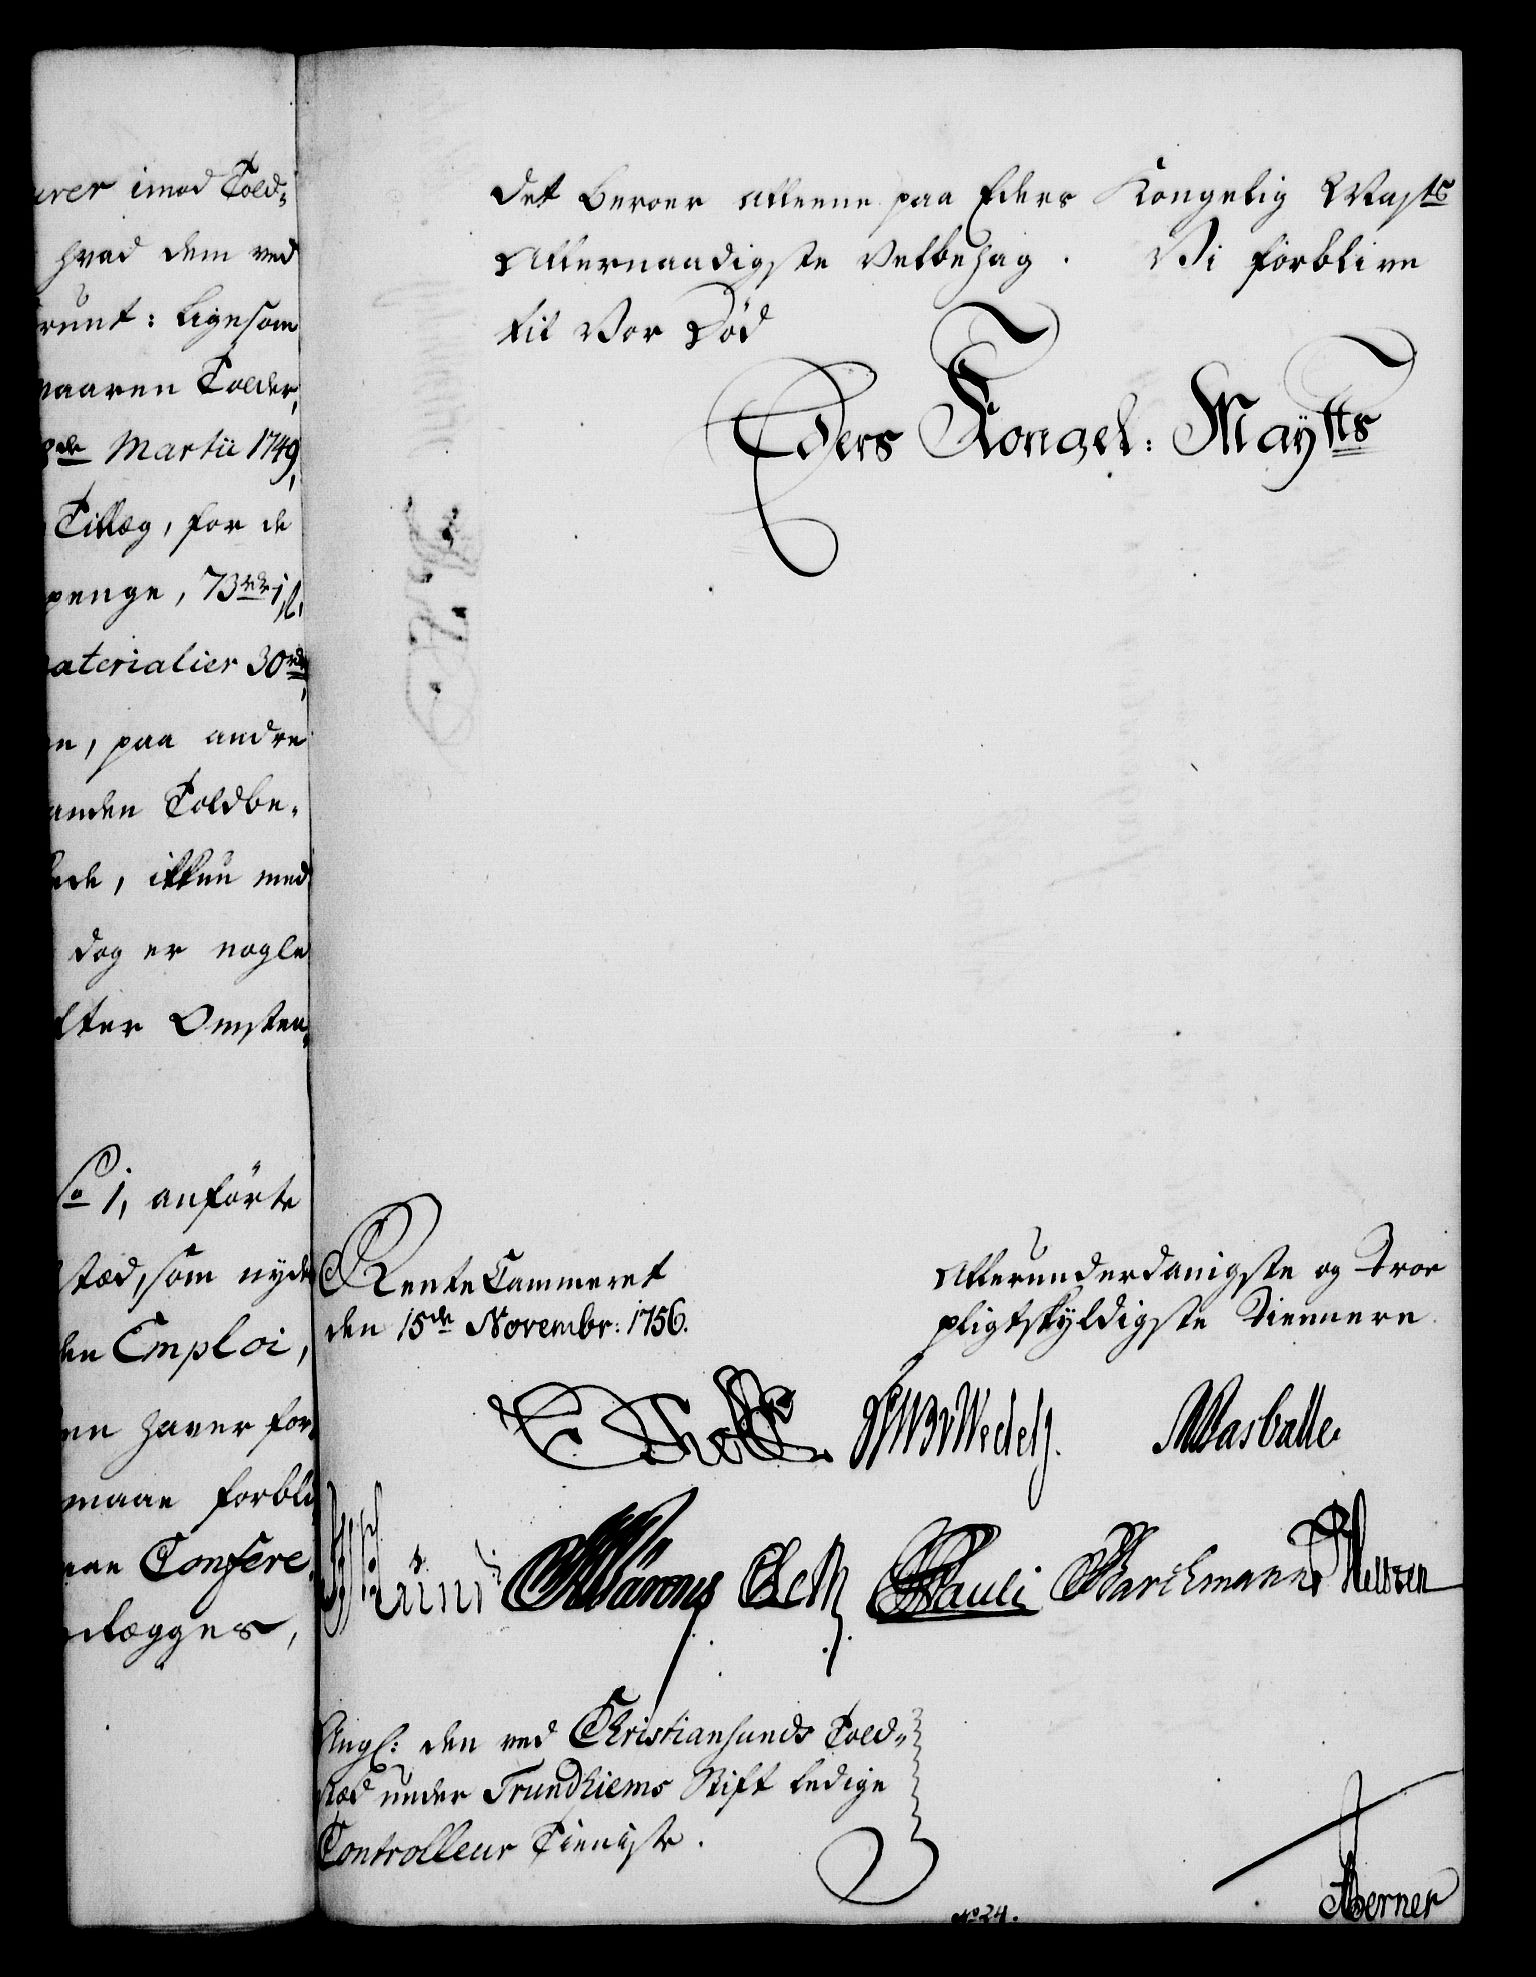 urer imod Told-
hvad dem ved
runt: ligesom
naaren Tolder,
8de Martii 1749,
Tillæg, for de
penge, 73 rdr 1 ß,
aterialier 30 rdr,
en, paa andre
anden Toldbe-
ede, ikkun med
dog er nogle
fter Omsten-
So 1, anførte
stæd, som nyde
den Emploi,
en haver for
maae forbli
aae Confere
edlægges,
Det beroer alleene paa Eders Kongelig Mayts
Allernaadigste Velbehag. Vi forblive
til Vor Død
Eders Kongel: Maytts
Rente Cammeret
den 15de Novembr: 1756.
Allerunderdanigste og Troe
pligtskyldigste Tiennere
E Holst Wedel Masballe
Pauli Barchmann Nelssen
Angl: den ved Christiansunds Told-
stæd under Trundhiems Stift ledige
Controlleur Tieniste.
Berner
No 24.